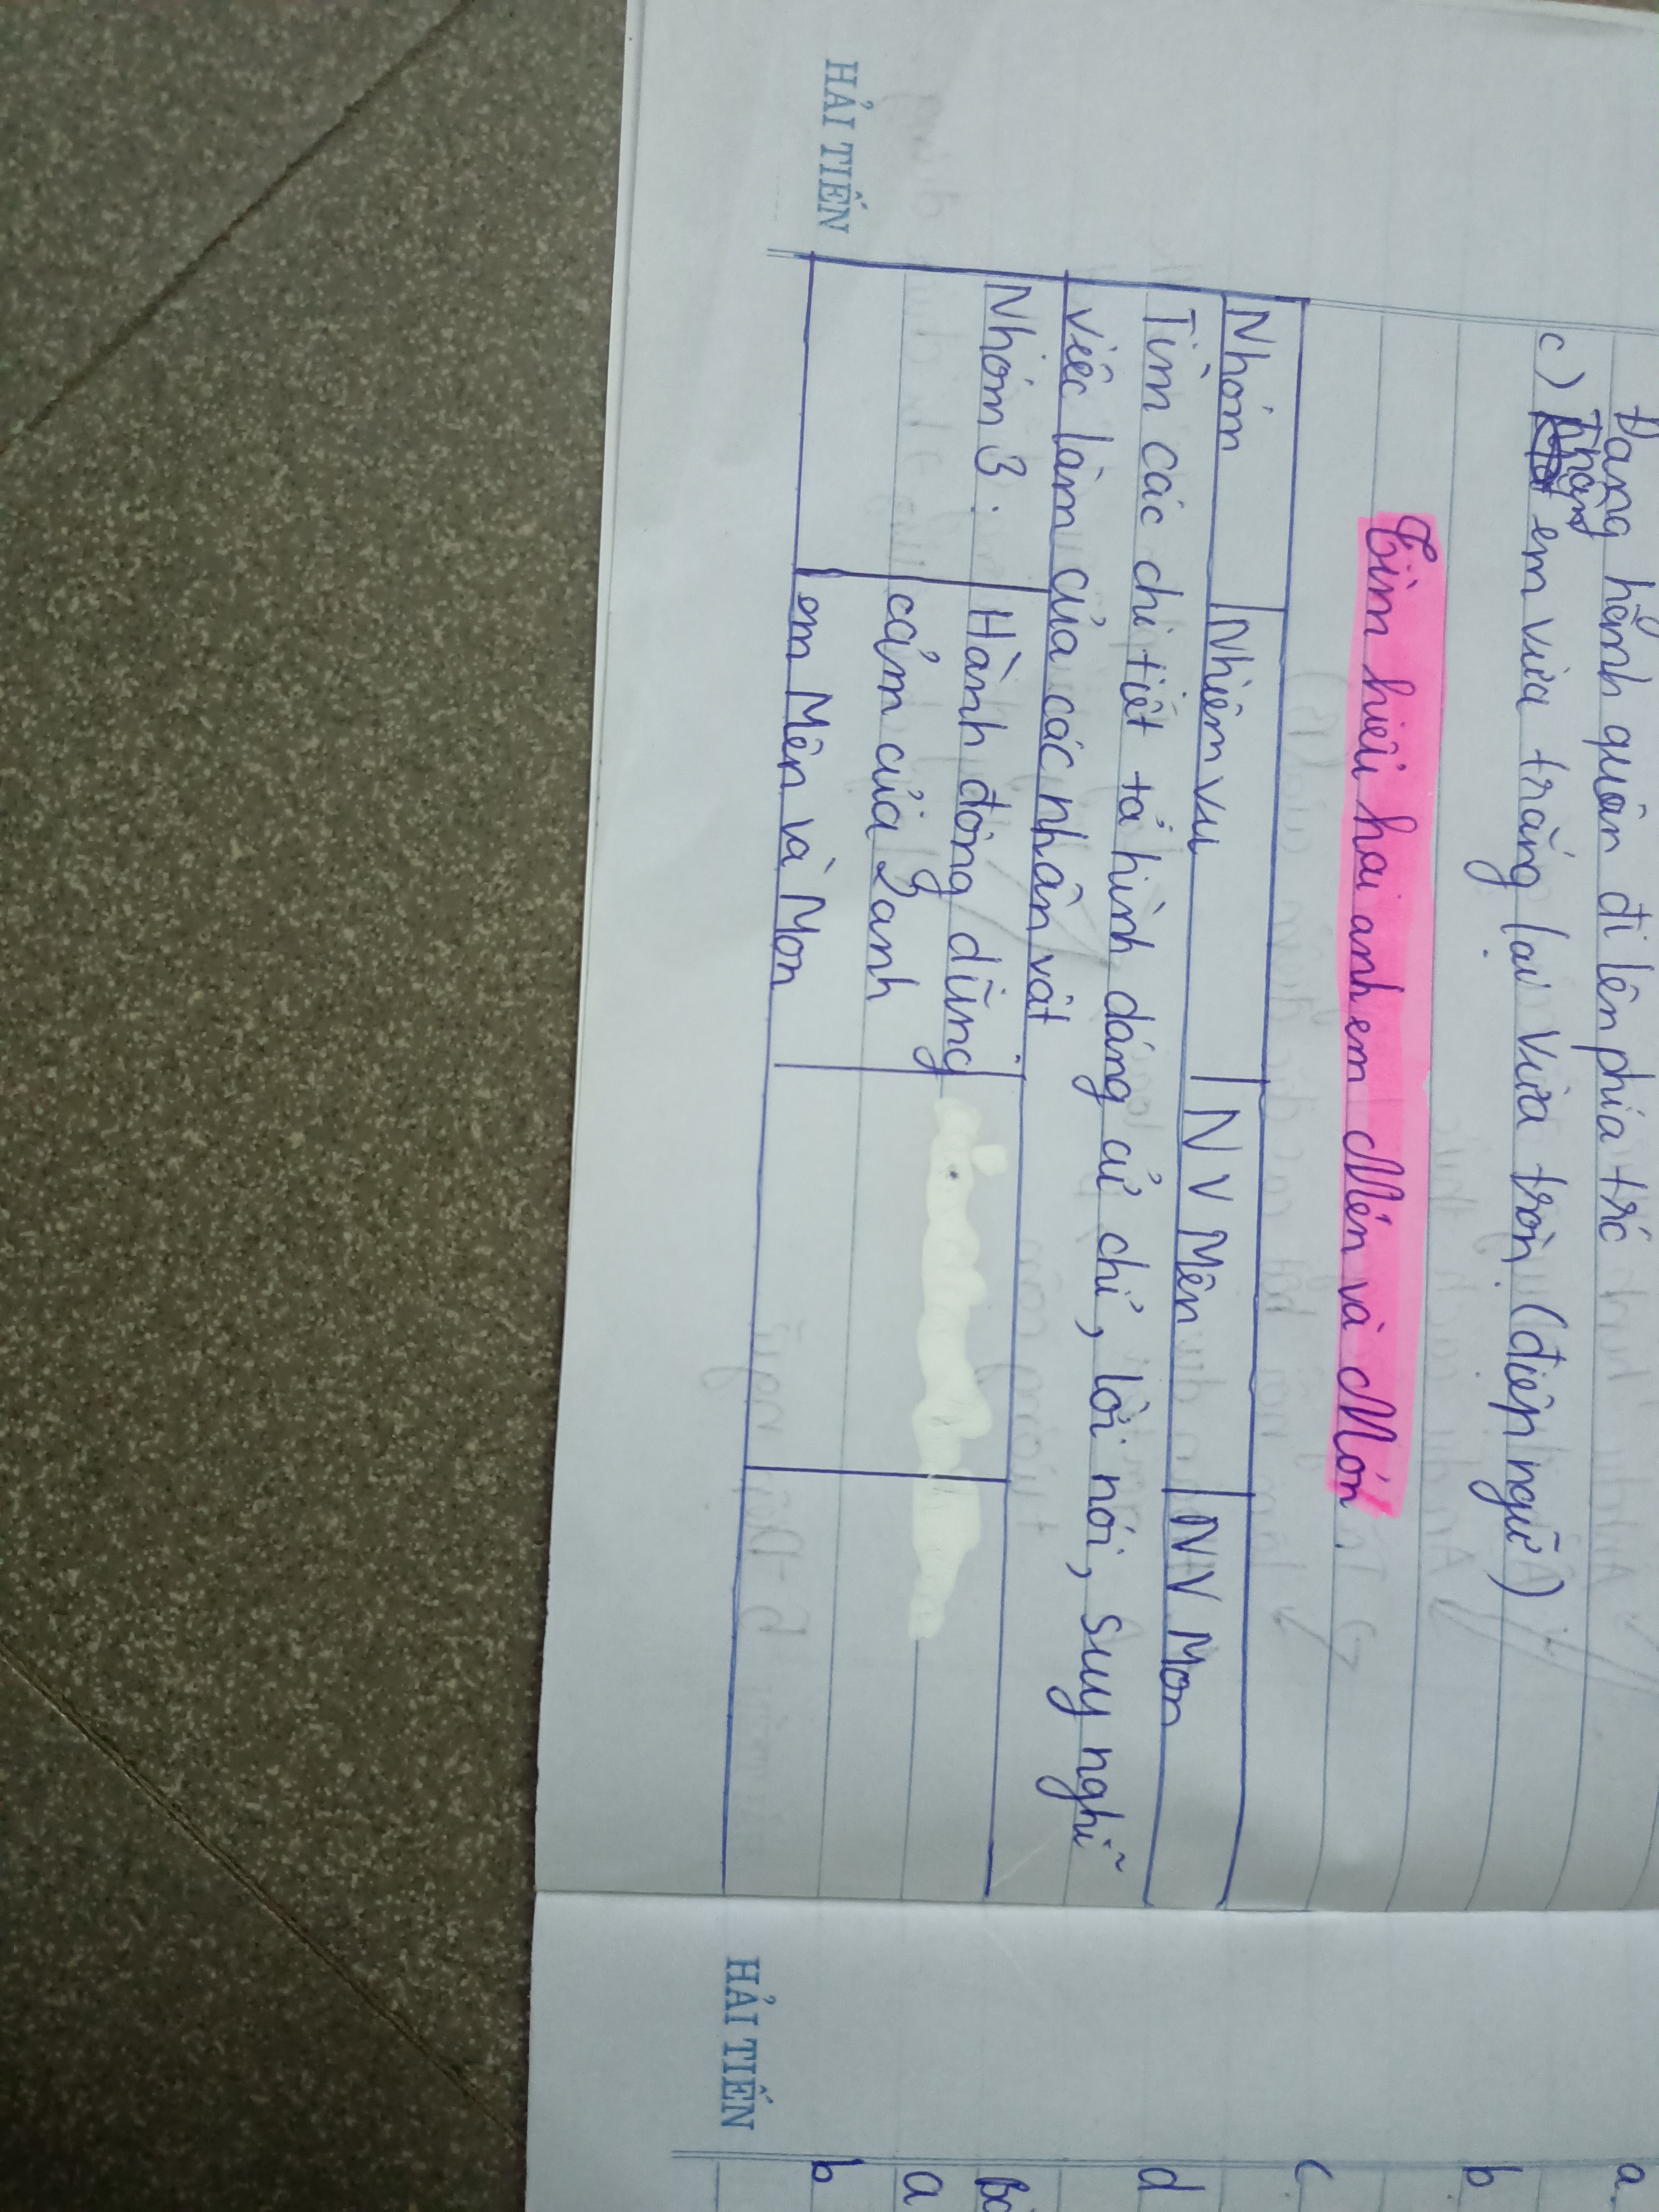 Đang hành quân đi lên phía trc
c) Thơng em vừa trắng lại vừa tròn (điệp ngữ)
Tìm hiểu hai anh em Mên và Mon.
Nhóm Nhiệm vụ NV Mên NV Mon
Tìm các chi tiết tả hình dáng cử chỉ, lời nói, suy nghĩ
việc làm của các nhân vật
Nhóm 3. Hành động dũng
cảm của 2 anh
em Mên và Mon
HẢI TIẾN
a.
b
c
d
Bà
a
b
HẢI TIẾN